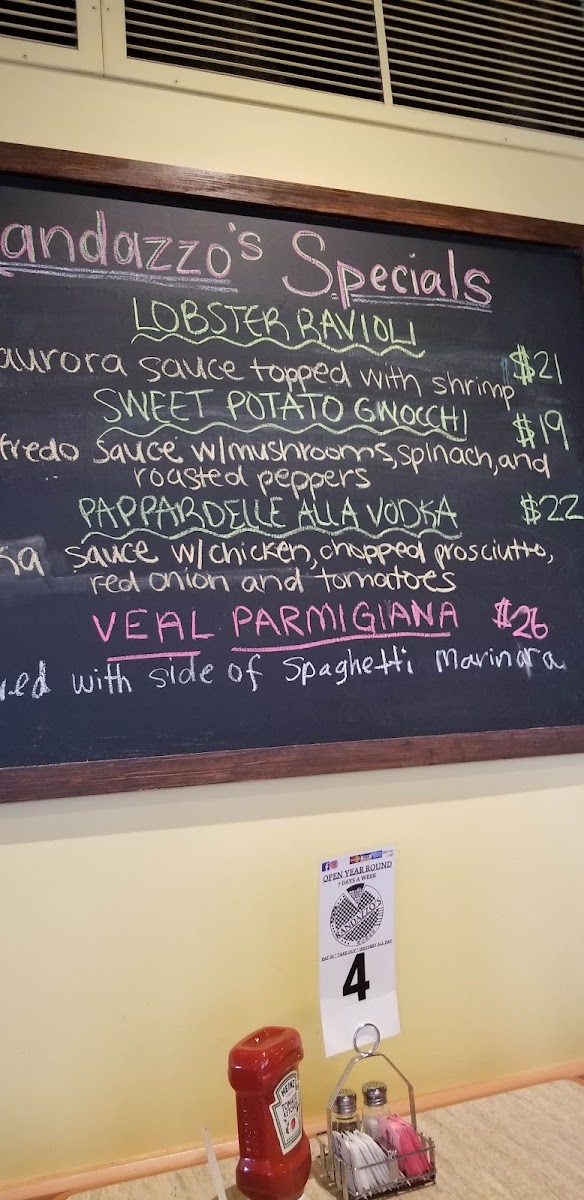 andazzo's Specials
LOBSTER RAVIOLI
aurora sauce topped with shrimp $21
SWEET POTATO GNOCCHI $19
fredo sauce w/mushrooms, spinach, and
roasted peppers
PAPPARDELLE ALLA VODKA $22
ka sauce w/chicken, chopped prosciutto,
red onion and tomatoes
VEAL PARMIGIANA $26
ved with side of Spaghetti Marinara
OPEN YEAR ROUND
7 DAYS A WEEK
RANDAZZO'S
EAT IN * TAKE OUT * DELIVERY ALL DAY
4
HEINZ
TOMATO
KETCHUP